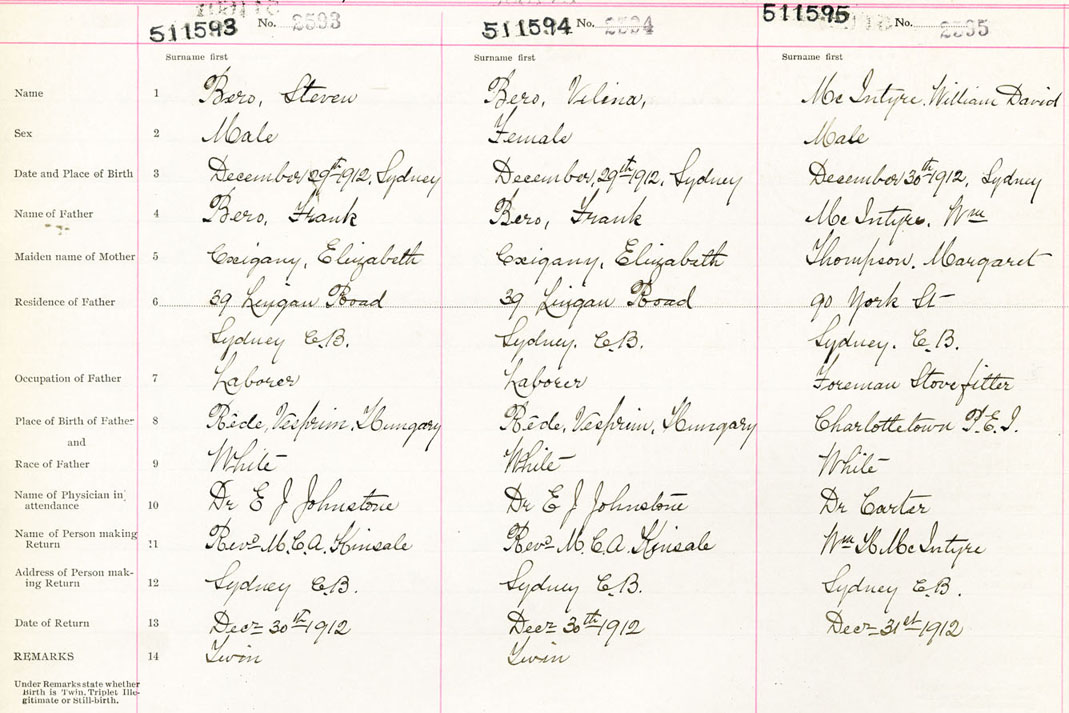 511593 No. 2593 511594 No. 2594 511595 No. 2595
Surname first Surname first Surname first
Name 1 Bero, Steven Bero, Velina, Mc Intyre, William David
Sex 2 Male Female Male
Date and Place of Birth 3 December 29th 1912, Sydney December, 29th 1912, Sydney December 30th 1912, Sydney
Name of Father 4 Bero, Frank Bero, Frank Mc Intyre, Wm
Maiden name of Mother 5 Cxigany, Elizabeth Cxigany, Elizabeth Thompson, Margaret
Residence of Father 6 39 Lingan Road 39 Lingan Road 90 York St
Sydney C.B. Sydney. C.B. Sydney. C.B.
Occupation of Father 7 Laborer Laborer Foreman Stovefitter
Place of Birth of Father 8 Rede, Vesprim, Hungary Rede, Vesprim, Hungary Charlottetown P.E.I.
and
Race of Father 9 White White White
Name of Physician in attendance 10 Dr E J Johnstone Dr E J Johnstone Dr Carter
Name of Person making Return 11 Revd M.C.A. Kinsale Revd M.C.A. Kinsale Wm H. Mc Intyre
Address of Person mak-
ing Return 12 Sydney C.B. Sydney C.B. Sydney C.B.
Date of Return 13 Decr 30th 1912 Decr 30th 1912 Decr 31st 1912
REMARKS 14 Twin Twin
Under Remarks state whether
Birth is Twin, Triplet Ille-
gitimate or Still-birth.